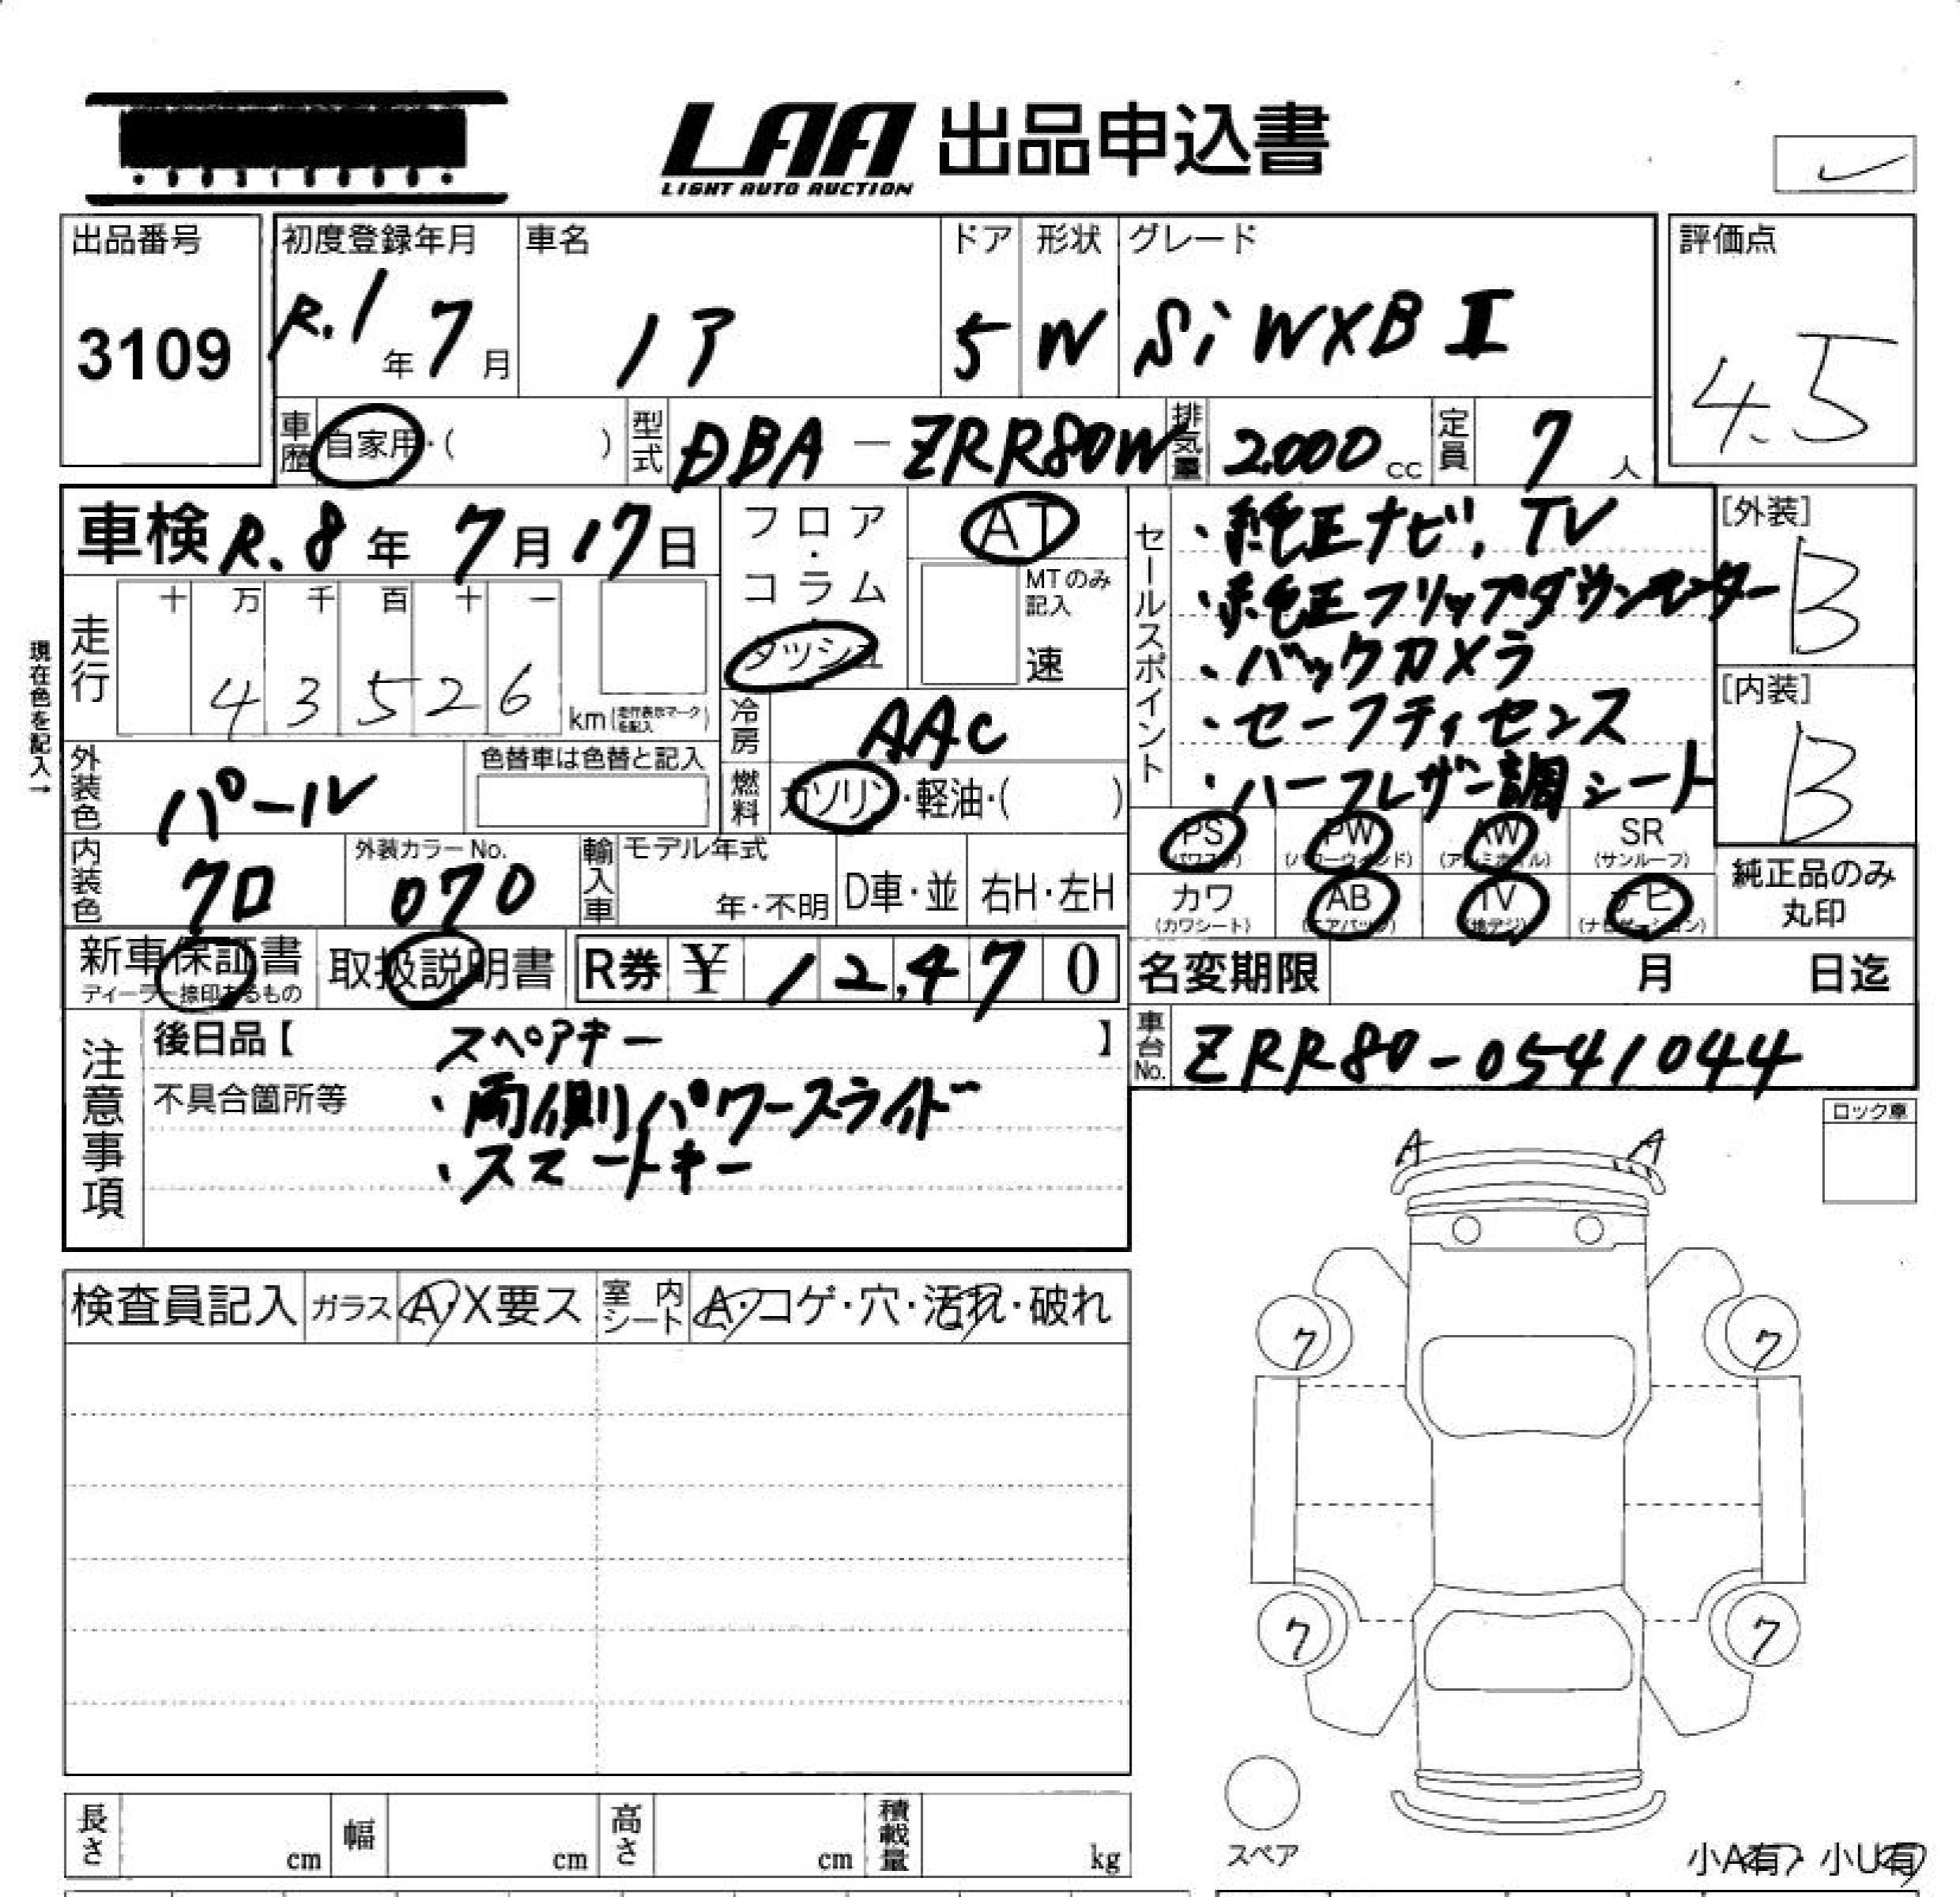 LAA 出品申込書
LIGHT AUTO AUCTION
出品番号
3109
初度登録年月
R.1年7月
車名
ノア
ドア
5
形状
W
グレード
Si WXB Ⅱ
評価点
4.5
車歴 自家用・( )
型式 DBA-ZRR80W
排気量 2000cc
定員 7人
車検 R.8年7月17日
フロア・コラム・ダッシュ
AT
MTのみ記入
速
現在色を記入→
走行
十 万 千 百 十 一
4 3 5 2 6
km(走行表示マークを記入)
冷房 AAC
燃料 ガソリン・軽油・( )
外装色 パール
色替車は色替と記入
内装色 クロ
外装カラーNo. 070
輸入車 モデル年式
年・不明
D車・並
右H・左H
セールスポイント
・純正ナビ、TV
・純正フリップダウンモニター
・バックカメラ
・セーフティセンス
・ハーフレザー調シート
[外装]
B
[内装]
B
PS (パワステ)
PW (パワーウィンド)
AW (アルミホイル)
SR (サンルーフ)
カワ (カワシート)
AB (エアバッグ)
TV (地デジ)
ナビ (ナビゲーション)
純正品のみ丸印
新車保証書
ディーラー捺印あるもの
取扱説明書
R券 ¥ 12,470
名変期限 月 日迄
車台No. ZRR80-0541044
注意事項
後日品【 スペアキー 】
不具合箇所等
・両側パワースライド
・スマートキー
ロック車
A A
検査員記入
ガラス A・X要ス
室内シート A・コゲ・穴・汚れ・破れ
ク ク
ク ク
スペア
小A有・小U有
長さ cm
幅 cm
高さ cm
積載量 kg